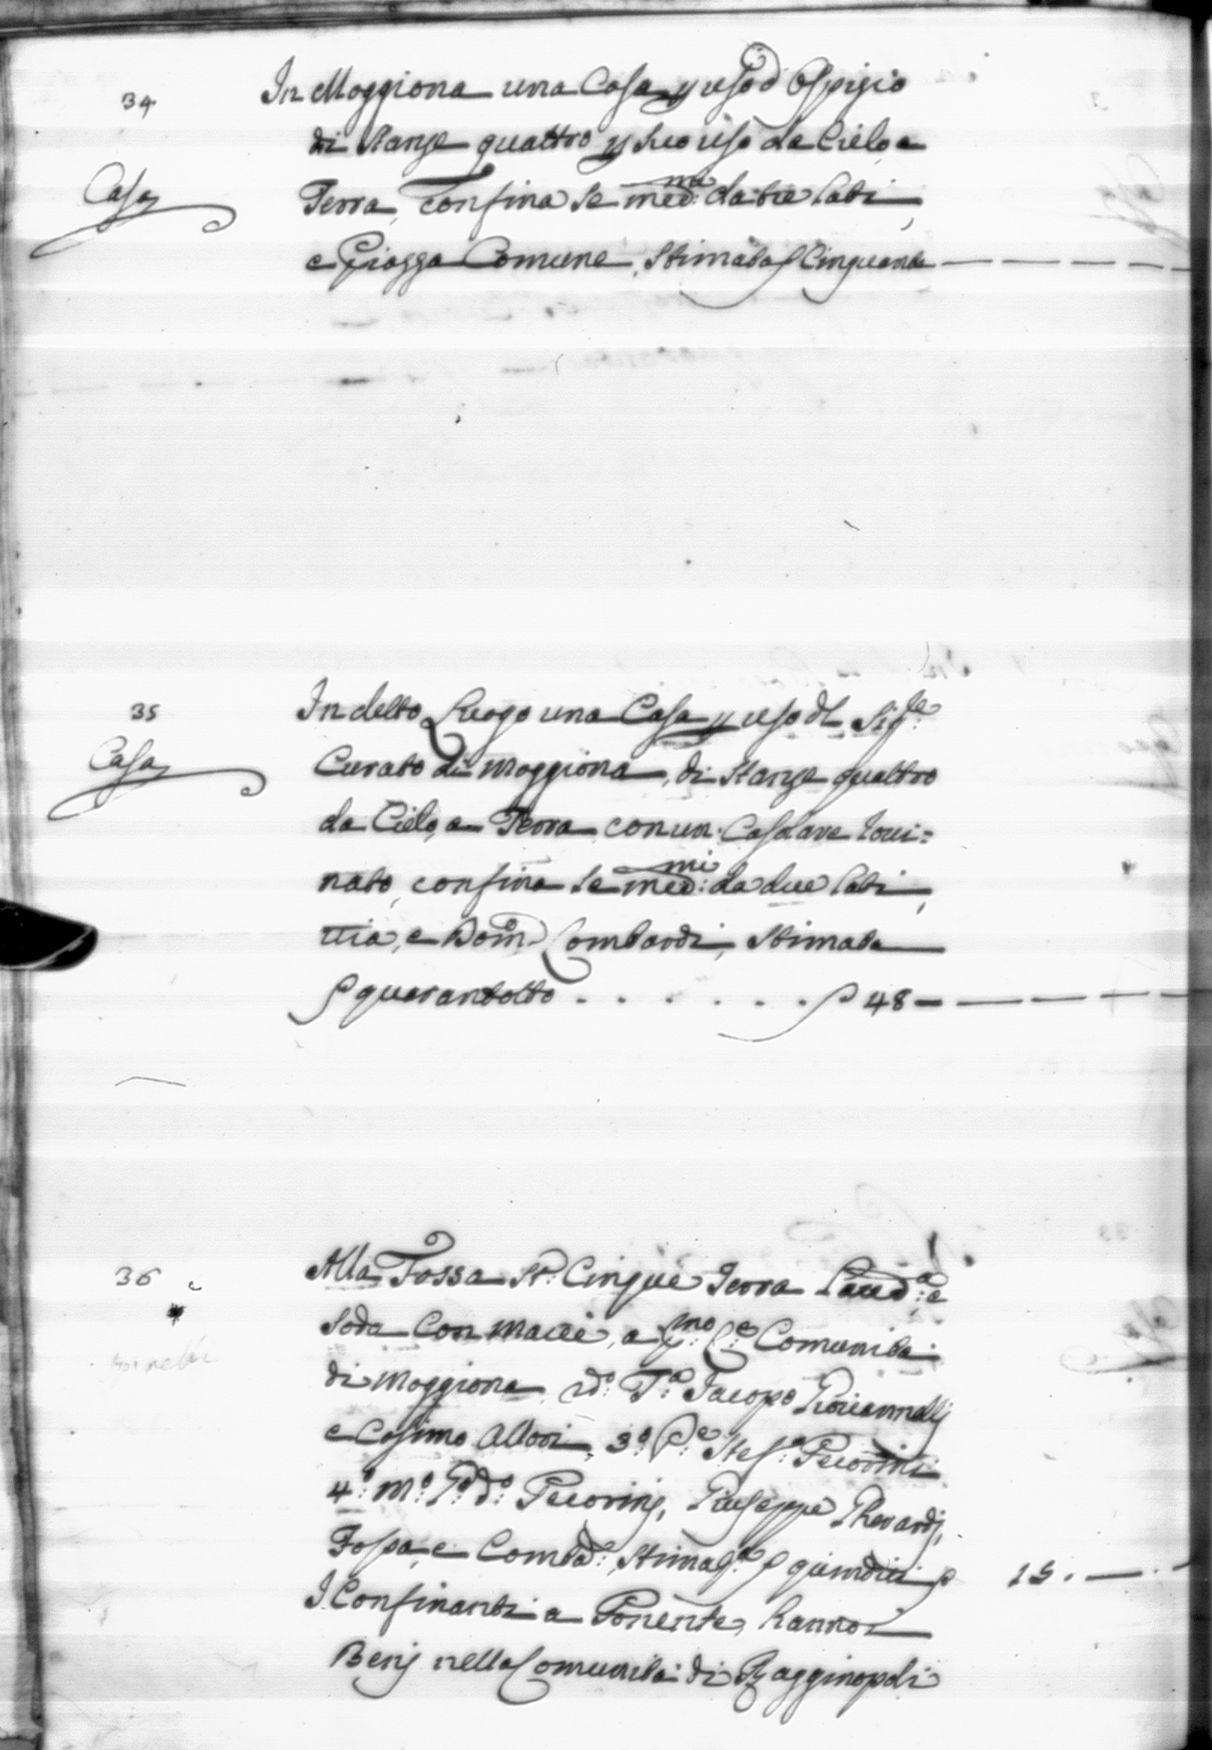 34
In Moggiona una Casa p uso d'Ospizio
di Stanze quattro p suo uso da Cielo a
Casa
Terra, confina se med:mi da tre lati,
e Piazza Comune, Stimata S Cinquanta
35
In detto Luogo una Casa p uso dl Sigre:
Casa
Curato di Moggiona, di Stanze quattro
da Cielo, a Terra con un Casolare rovi=
nato, confina se med:mi da due lati,
via, e Dom:co Lombardi, Stimata
S quarantotto . . . . . . . S 48
36
Alla Fossa St: Cinque Terra
soda con macie, a pmo: Comunità
di Moggiona, 2do: Jacopo Giovannelli
e Cosimo Allori, 3o: Pe: Stefo: Pecorini
4o: Mo: Pecorinj, Giuseppe Gherardj,
Fossa, e Stimata S quindici S 15.
I Confinanti a Ponente, hanno i
Benj nella Comunità di Ragginopoli